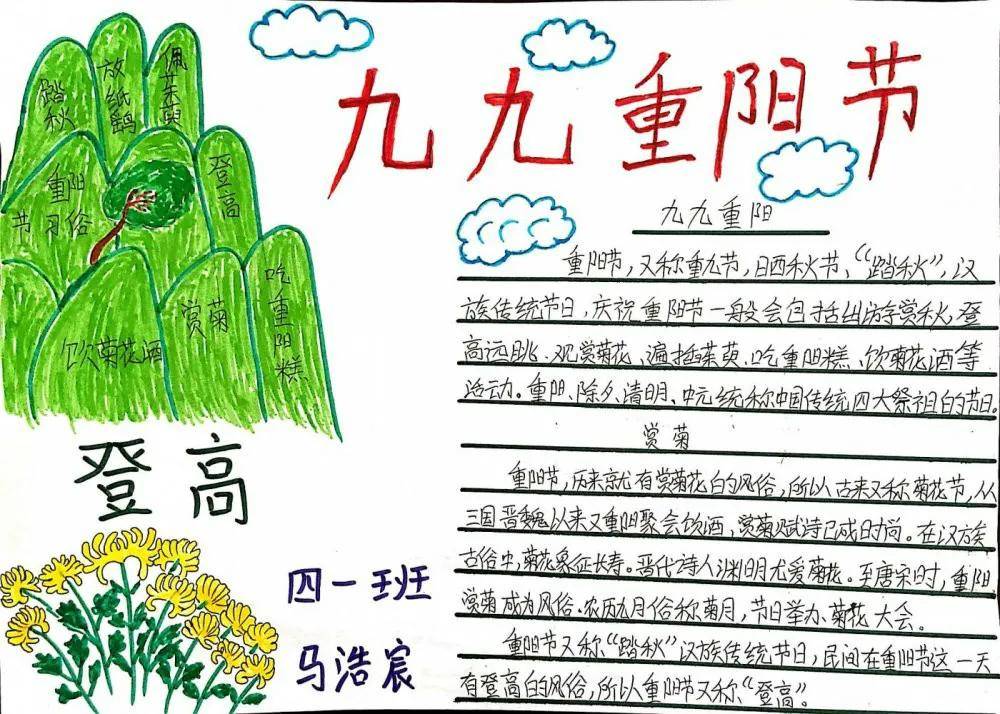 九九重阳节
踏秋
放纸鹞
佩茱萸
重阳
节习俗
登高
饮菊花酒
赏菊
吃重阳糕
登高
四一班
马浩宸
九九重阳
重阳节，又称重九节，日西秋节、“踏秋”，汉
族传统节日，庆祝重阳节一般会包括出游赏秋、登
高远眺、观赏菊花、遍插茱萸、吃重阳糕、饮菊花酒等
活动。重阳、除夕、清明、中元统称中国传统四大祭祖的节日。
赏菊
重阳节，历来就有赏菊花的风俗，所以古来又称菊花节，从
三国晋魏以来又重阳聚会饮酒，赏菊赋诗已成时尚。在汉族
古俗中，菊花象征长寿。晋代诗人渊明尤爱菊花。至唐宋时，重阳
赏菊成为风俗、农历九月俗称菊月，节日举办菊花大会。
重阳节又称“踏秋”汉族传统节日，民间在重阳节这一天
有登高的风俗，所以重阳节又称“登高”。